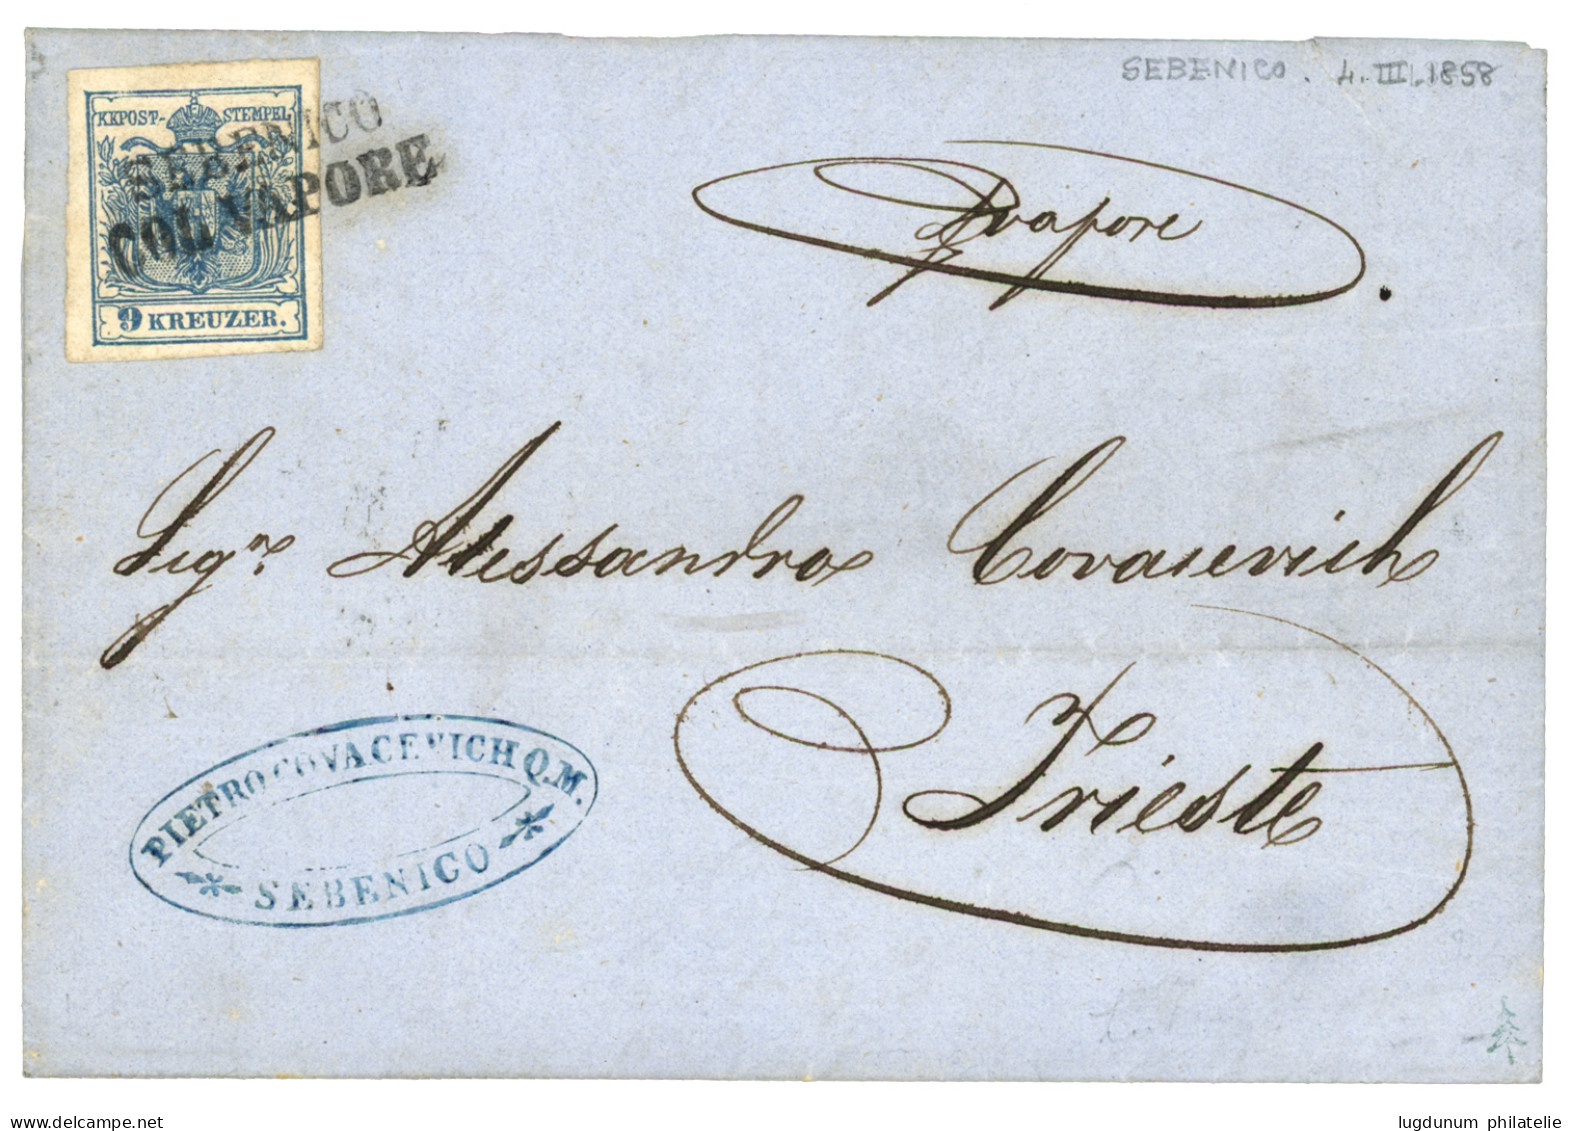 SEBENICO. 4. III. 1858
KKPOST-STEMPEL
SEBENICO
COL VAPORE
9 KREUZER.
p vapore
Sigr. Alessandro Covacevich
Trieste
PIETRO COVACEVICH Q.M.
SEBENICO
www.delcampe.net
lugdunum philatelie